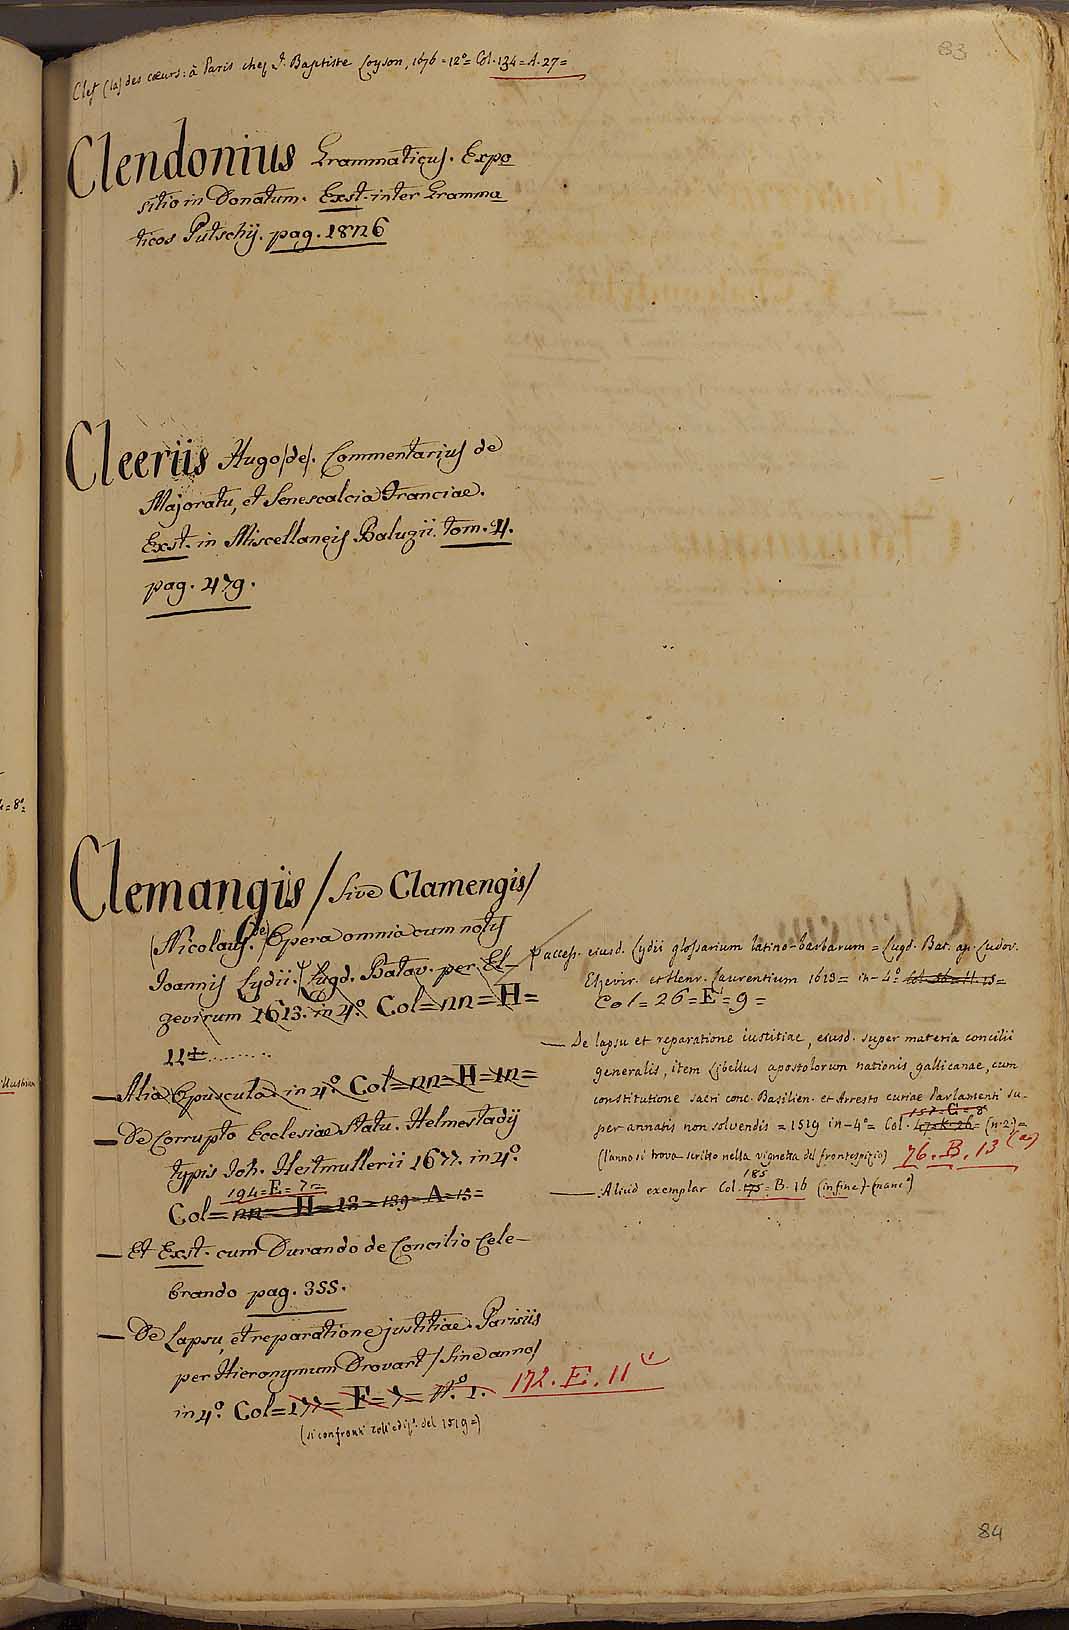 83
Clef (la) des cœurs: à Paris chez J. Baptiste Loyson, 1676 = 12° = Col. 134 = A. 27 =
Clendonius Grammaticus. Expo
sitio in Donatum. Exst. inter Gramma
ticos Putschij. pag. 1876
Cleeriis Hugo /de/. Commentarius de
Majoratu, et Senescalcia Franciae.
Exst. in Miscellaneis Baluzii. tom. 4.
pag. 479.
Clemangis / sive Clamengis/
(Nicolaus de) Opera omnia cum notis
Joannis Lydii. Lugd. Batav. per El-
zevirum 1613. in 4°. Col = nn = H =
11
— Alia Opuscula in 4°. Col = nn = H = 12 =
— De Corrupto Ecclesiae Statu. Helmestadij
typis Joh. Heitmullerii 1677. in 4°.
194 = E = 7 =
Col = nn = H = 13 = 139 = A = 15 =
— Et Exst. cum Durando de Concilio Cele-
brando pag. 355.
— De Lapsu, et reparatione justitiae. Parisiis
per Hieronymum Drovart / sine anno/
in 4°. Col = 177 = F = 7 = N.° 1. 172. E. 11
(si confronti coll'ediz.e del 1519 =)
access. eiusd. Lydii glossarium latino-barbarum = Lugd. Bat. ap. Ludov.
Elzevir. et Henr. Laurentium 1613 = in-4°
Col = 26 = E = 9 =
— De lapsu et reparatione iustitiae, eiusd. super materia concilii
generalis, item Libellus apostolorum nationis gallicanae, cum
constitutione sacri conc. Basilien. et Arresto curiae Parlamenti su-
157. G = 8
per annatis non solvendis = 1519 in-4° = Col. (n. 2.) =
(l'anno si trova scritto nella vignetta del frontespizio) 76. B. 13
185
— Aliud exemplar Col. 175 = B. 16 (in fine)
84